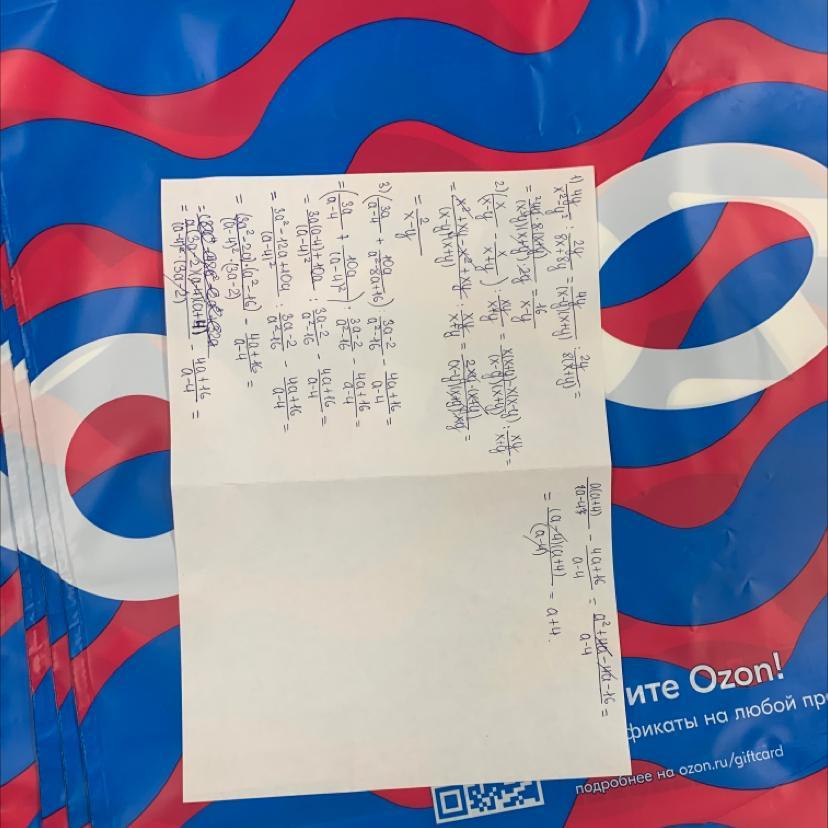 1) 4y/(x²-y²) : 2y/(8x+8y) = 4y/((x-y)(x+y)) : 2y/(8(x+y)) =
= 16/(x-y)
2) (x/(x-y) - x/(x+y)) : xy/(x+y) = (x(x+y)-x(x-y))/((x-y)(x+y)) : xy/(x+y) =
= (x²+xy-x²+xy)/((x-y)(x+y)) : xy/(x+y) = 2xy·(x+y)/((x-y)(x+y)·xy) =
= 2/(x-y)
3) (3a/(a-4) + 10a/(a²-8a+16)) : (3a-2)/(a²-16) - (4a+16)/(a-4) =
= (3a/(a-4) + 10a/(a-4)²) : (3a-2)/(a²-16) - (4a+16)/(a-4) =
= (3a(a-4)+10a)/(a-4)² : (3a-2)/(a²-16) - (4a+16)/(a-4) =
= (3a²-12a+10a)/(a-4)² : (3a-2)/(a²-16) - (4a+16)/(a-4) =
= (3a²-2a)·(a²-16)/((a-4)²·(3a-2)) - (4a+16)/(a-4) =
= a(3a-2)(a-4)(a+4)/((a-4)²·(3a-2)) - (4a+16)/(a-4) =
a(a+4)/(a-4) - (4a+16)/(a-4) = (a²+4a-4a-16)/(a-4) =
= (a-4)(a+4)/(a-4) = a+4.
ите Ozon!
фикаты на любой пр
подробнее на ozon.ru/giftcard